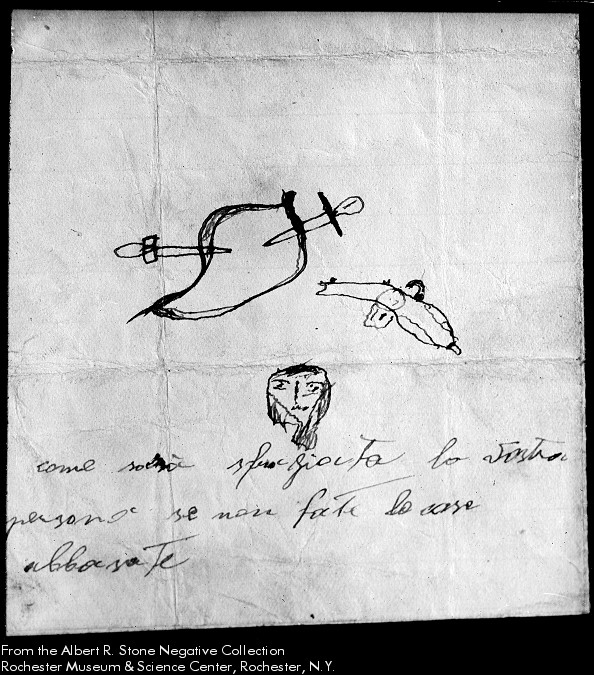 come sarà sfregiata la vostra
persona se non fate le cose
abbasate
From the Albert R. Stone Negative Collection
Rochester Museum & Science Center, Rochester, N.Y.